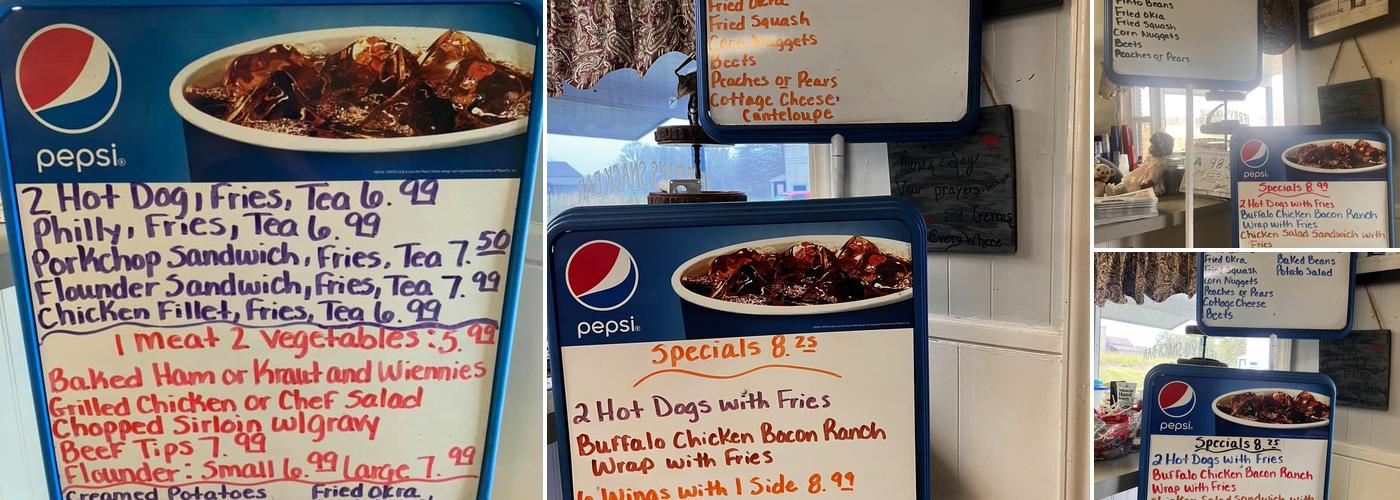 pepsi
2 Hot Dog, Fries, Tea 6.99
Philly, Fries, Tea 6.99
Porkchop Sandwich, Fries, Tea 7.50
Flounder Sandwich, Fries, Tea 7.99
Chicken Fillet, Fries, Tea 6.99
1 Meat 2 vegetables: 5.99
Baked Ham or Kraut and Wiennies
Grilled Chicken or Chef Salad
Chopped Sirloin w/gravy
Beef Tips 7.99
Flounder: Small 6.99 Large 7.99
Creamed Potatoes Fried Okra,
Fried Okra
Fried Squash
Corn Nuggets
Beets
Peaches or Pears
Cottage Cheese
Canteloupe
Your prayers
and Germs
Every Where
SNACK BAR
pepsi
Specials 8.25
2 Hot Dogs with Fries
Buffalo Chicken Bacon Ranch
Wrap with Fries
6 Wings with 1 Side 8.99
Pinto Beans
Fried Okra
Fried Squash
Corn Nuggets
Beets
Peaches or Pears
A 98
pepsi
Specials 8.99
2 Hot Dogs with Fries
Buffalo Chicken Bacon Ranch
Wrap with Fries
Chicken Salad Sandwich with
Fries
Fried Okra Baked Beans
Fried Squash Potato Salad
Corn Nuggets
Peaches or Pears
Cottage Cheese
Beets
SNACK BAR
pepsi
Specials 8.25
2 Hot Dogs with Fries
Buffalo Chicken Bacon Ranch
Wrap with Fries
Chicken Salad Sandwich with